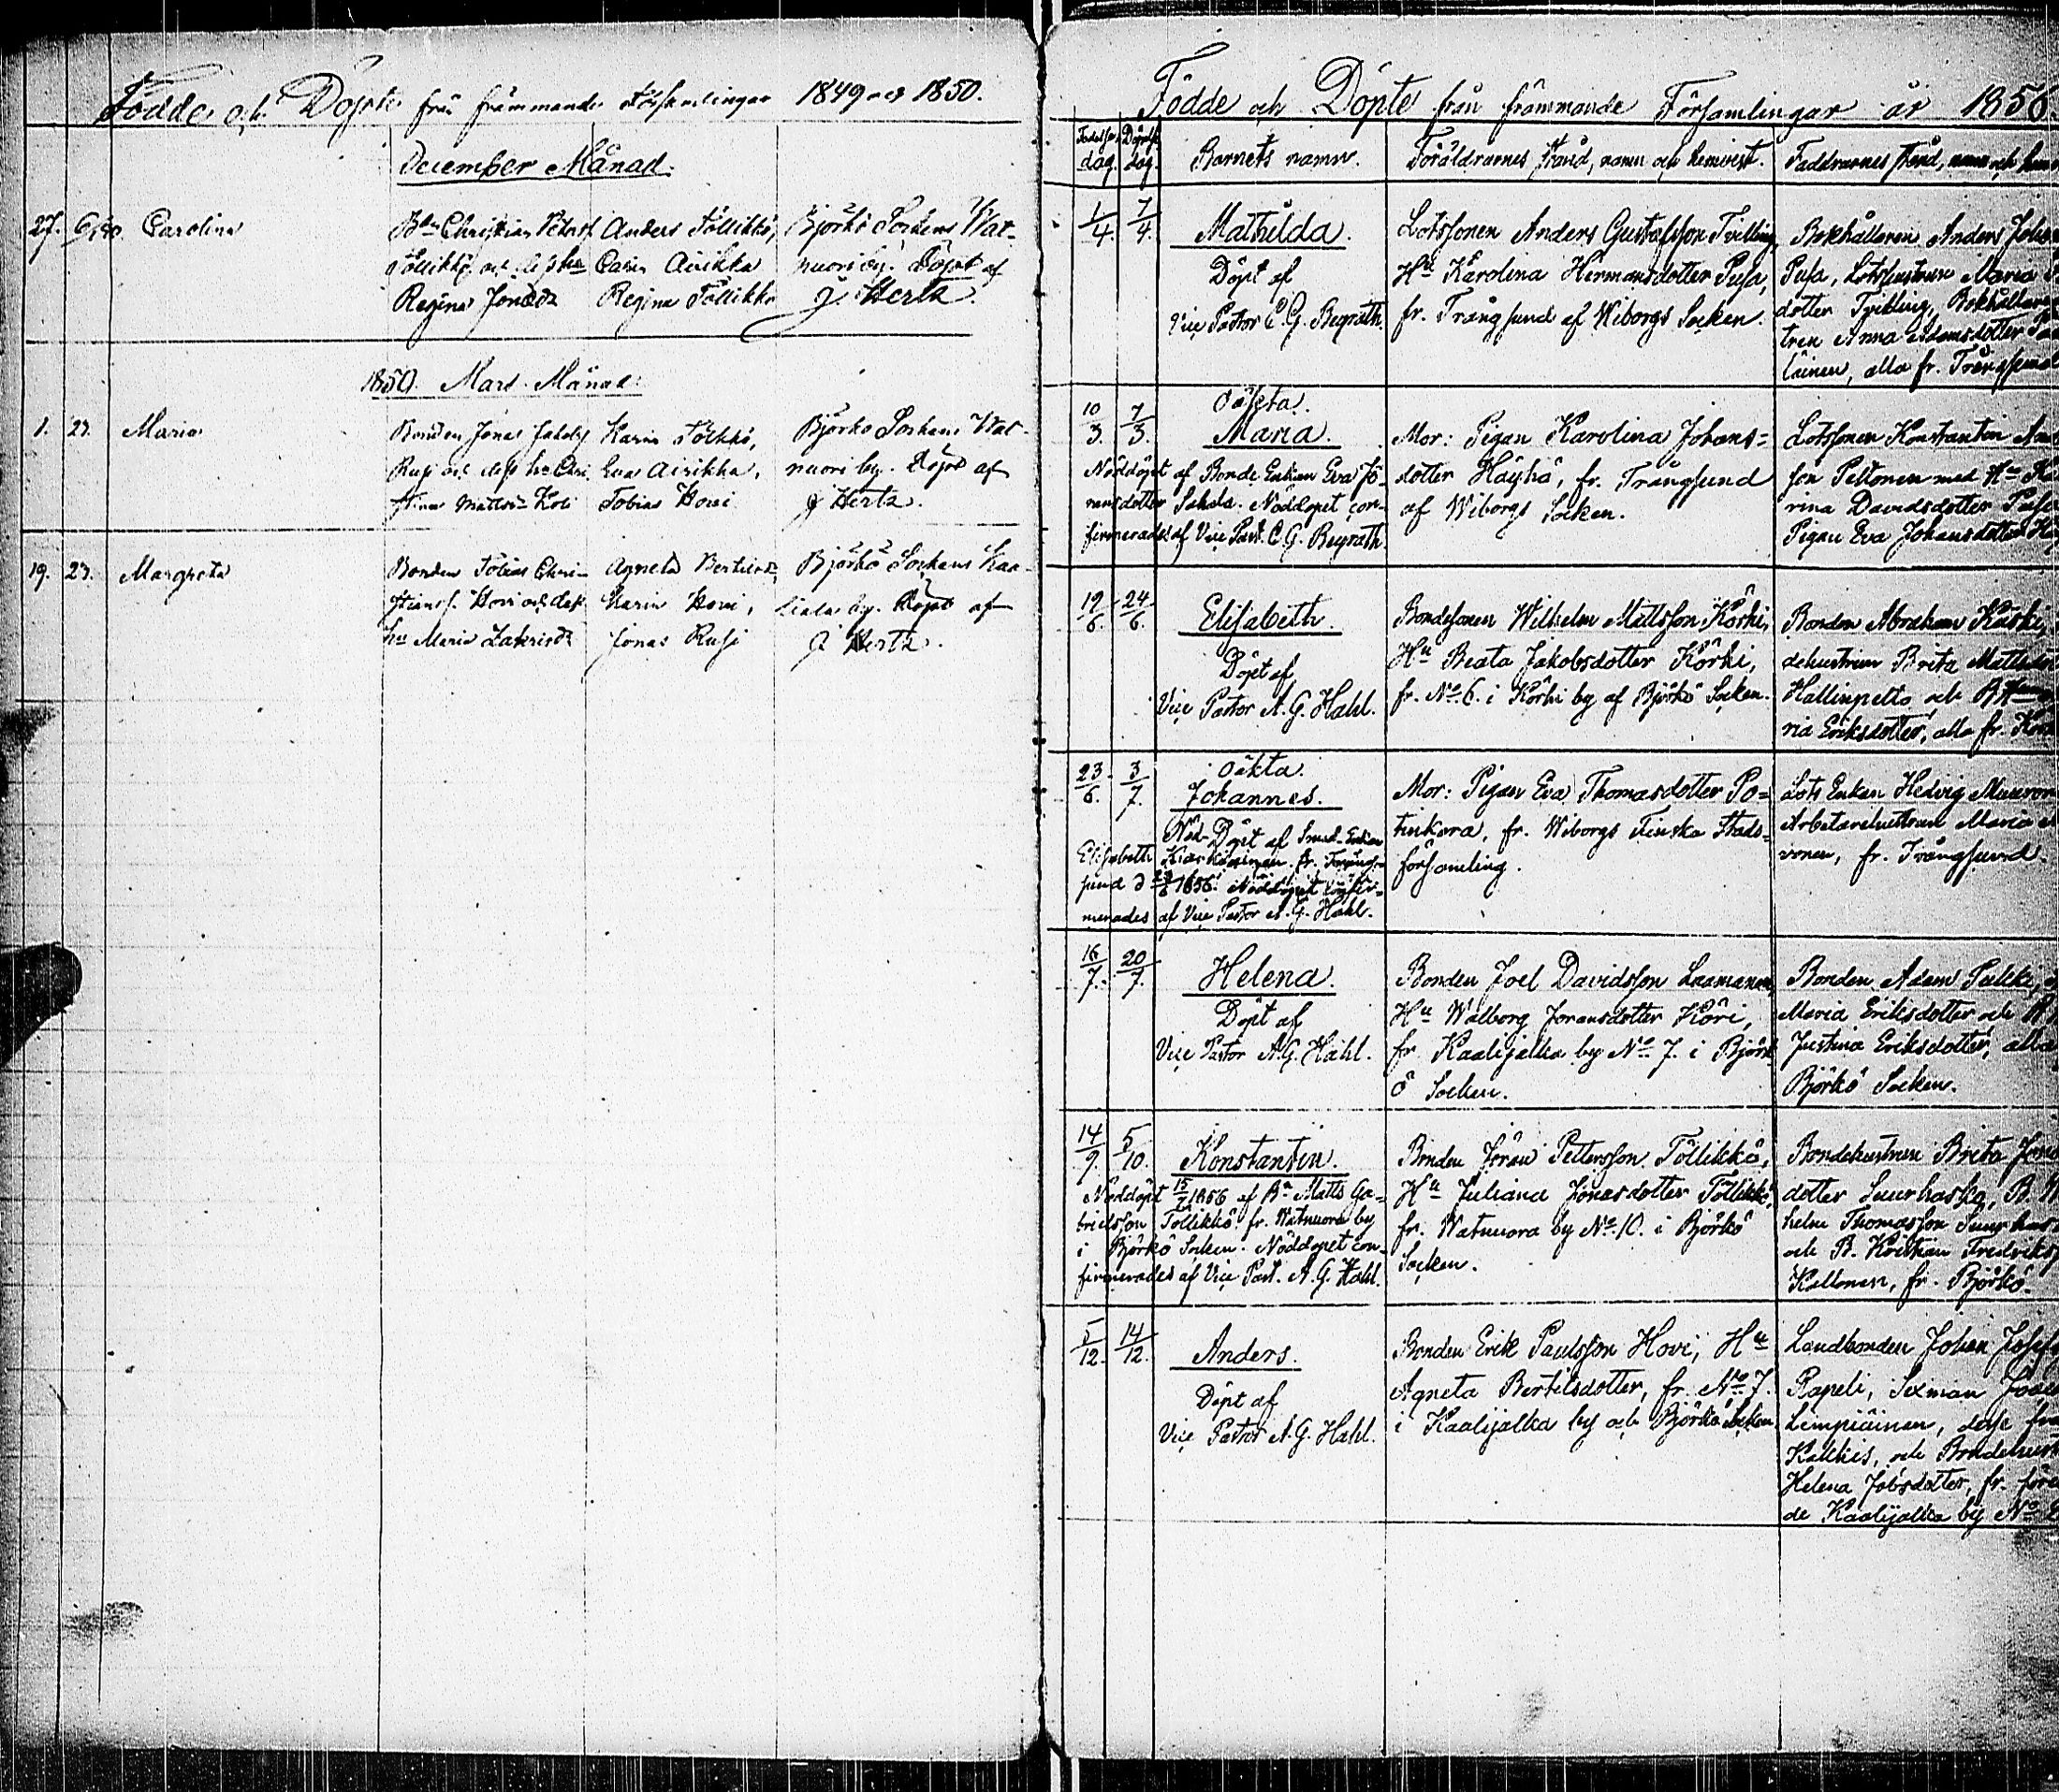 Födde och Döpte från främmande Församlingar 1849 och 1850.
December Månad.
27. 6/1 50. Carolina
Bdn Christian Peterss. Anders Töllikkö, Björkö Sockens Wat-
Töllikkö och dess hu Carin Airikka nuori by. Döpt af
Regina Jonasdr Regina Töllikkö J Hertz.
1850. Mars Månad:
1. 23. Maria
Bonden Jonas Jakobss Karin Tölikkö, Björkö Sockens Wat-
Rusi och dess hu Chri- Eva Airikka, nuori by. Döpt af
stina Mattsdr Koli Tobias Hovi J Hertz.
19. 23. Margreta
Bonden Tobias Chri- Agneta Bertilsdr Björkö Sockens Kaa-
stianss. Hovi och dess Karin Hovi, by. Döpt af
hu Maria Zakrisdr Jonas Rusi J Hertz.
Födde och Döpte från främmande Församlingar år 1856.
Födelse dag. Döpelse dag. Barnets namn. Föräldrarnes stånd, namn och hemvist. Faddrarnes stånd, namn och hem
1/4. 7/4. Mathilda.
Döpt af
Vice Pastor C. G. Begrath.
Lotssonen Anders Gustafsson Tvilling,
Hu Karolina Hermansdotter Pusa,
fr. Trångsund af Wiborgs Socken.
Bokhållaren Anders Johans
Pusa, Lotshustrun Maria
dotter Tvilling, Bokhållare
tren Anna Adamsdotter
läinen, alla fr. Trångsund
10/3. 7/3. Oäkta.
Maria.
Nöddöpt af Bonde Enkan Eva Jö-
nensdotter Sakala. Nöddopet con-
firmerades af Vice Past. C. G. Begrath.
Mor: Pigan Karolina Johans-
dotter Häyhä, fr. Trångsund
af Wiborgs Socken.
Lotssonen Konstantin
son Peltonen med Hu Ka
rina Davidsdotter Pusa
Pigan Eva Johansdotter
19/6. 24/6. Elisabeth.
Döpt af
Vice Pastor A. G. Hahl.
Bondesonen Wilhelm Mattsson Körki,
Hu Beata Jakobsdotter Körki,
fr. No. 6. i Körki by af Björkö Socken.
Bonden Abraham Körki,
dehustrun Brita Mattsdot
Hallinpelto, och B
ria Eriksdotter, alla fr. Kör
23/6. 3/7. Oäkta.
Johannes.
Nöd-Döpt af Smed-Enkan
Elisabeth fr. Trång-
sund d 23/6 1856. Nöddopet confir-
merades af Vice Pastor A. G. Hahl.
Mor: Pigan Eva Thomasdotter Po-
tinkara, fr. Wiborgs Finska Stads-
församling.
Lots Enkan Hedvig
Arbetarehustrun Maria
vonen, fr. Trångsund.
16/7. 20/7. Helena.
Döpt af
Vice Pastor A. G. Hahl.
Bonden Joel Davidsson Laamanen,
Hu Walborg Joransdotter Köri,
fr. Kaalijalka by No. 7. i Björk
ö Socken.
Bonden Adam Pulkki,
Maria Eriksdotter och B
Justina Eriksdotter, alla
Björkö Socken.
14/9. 5/10. Konstantin.
Nöddöpt 15/9 1856 af Bn Matts Ga-
brielsson Töllikkö fr. Watnuora by
i Björkö Socken. Nöddopet con-
firmerades af Vice Past. A. G. Hahl.
Bonden Jöran Pettersson Töllikkö,
Hu Juliana Jonasdotter Töllikkö,
fr. Watnuora by No. 10. i Björkö
Socken.
Bondehustrun Brita Jon
dotter Suurhasko, B. W
helm Thomasson Suurhas
och B. Kristian Fredriks
Kallonen, fr. Björkö.
5/12. 14/12. Anders.
Döpt af
Vice Pastor A. G. Hahl.
Bonden Erik Paulsson Hovi, Hu
Agneta Bertilsdotter, fr. No. 7.
i Kaalijalka by och Björkö Socken
Landbonden Johan Josefs
Rapeli, Sexman
Lempiäinen, desse från
Kakkis, och Bondehust
Helena Jobsdotter, fr.
de Kaalijalka by No